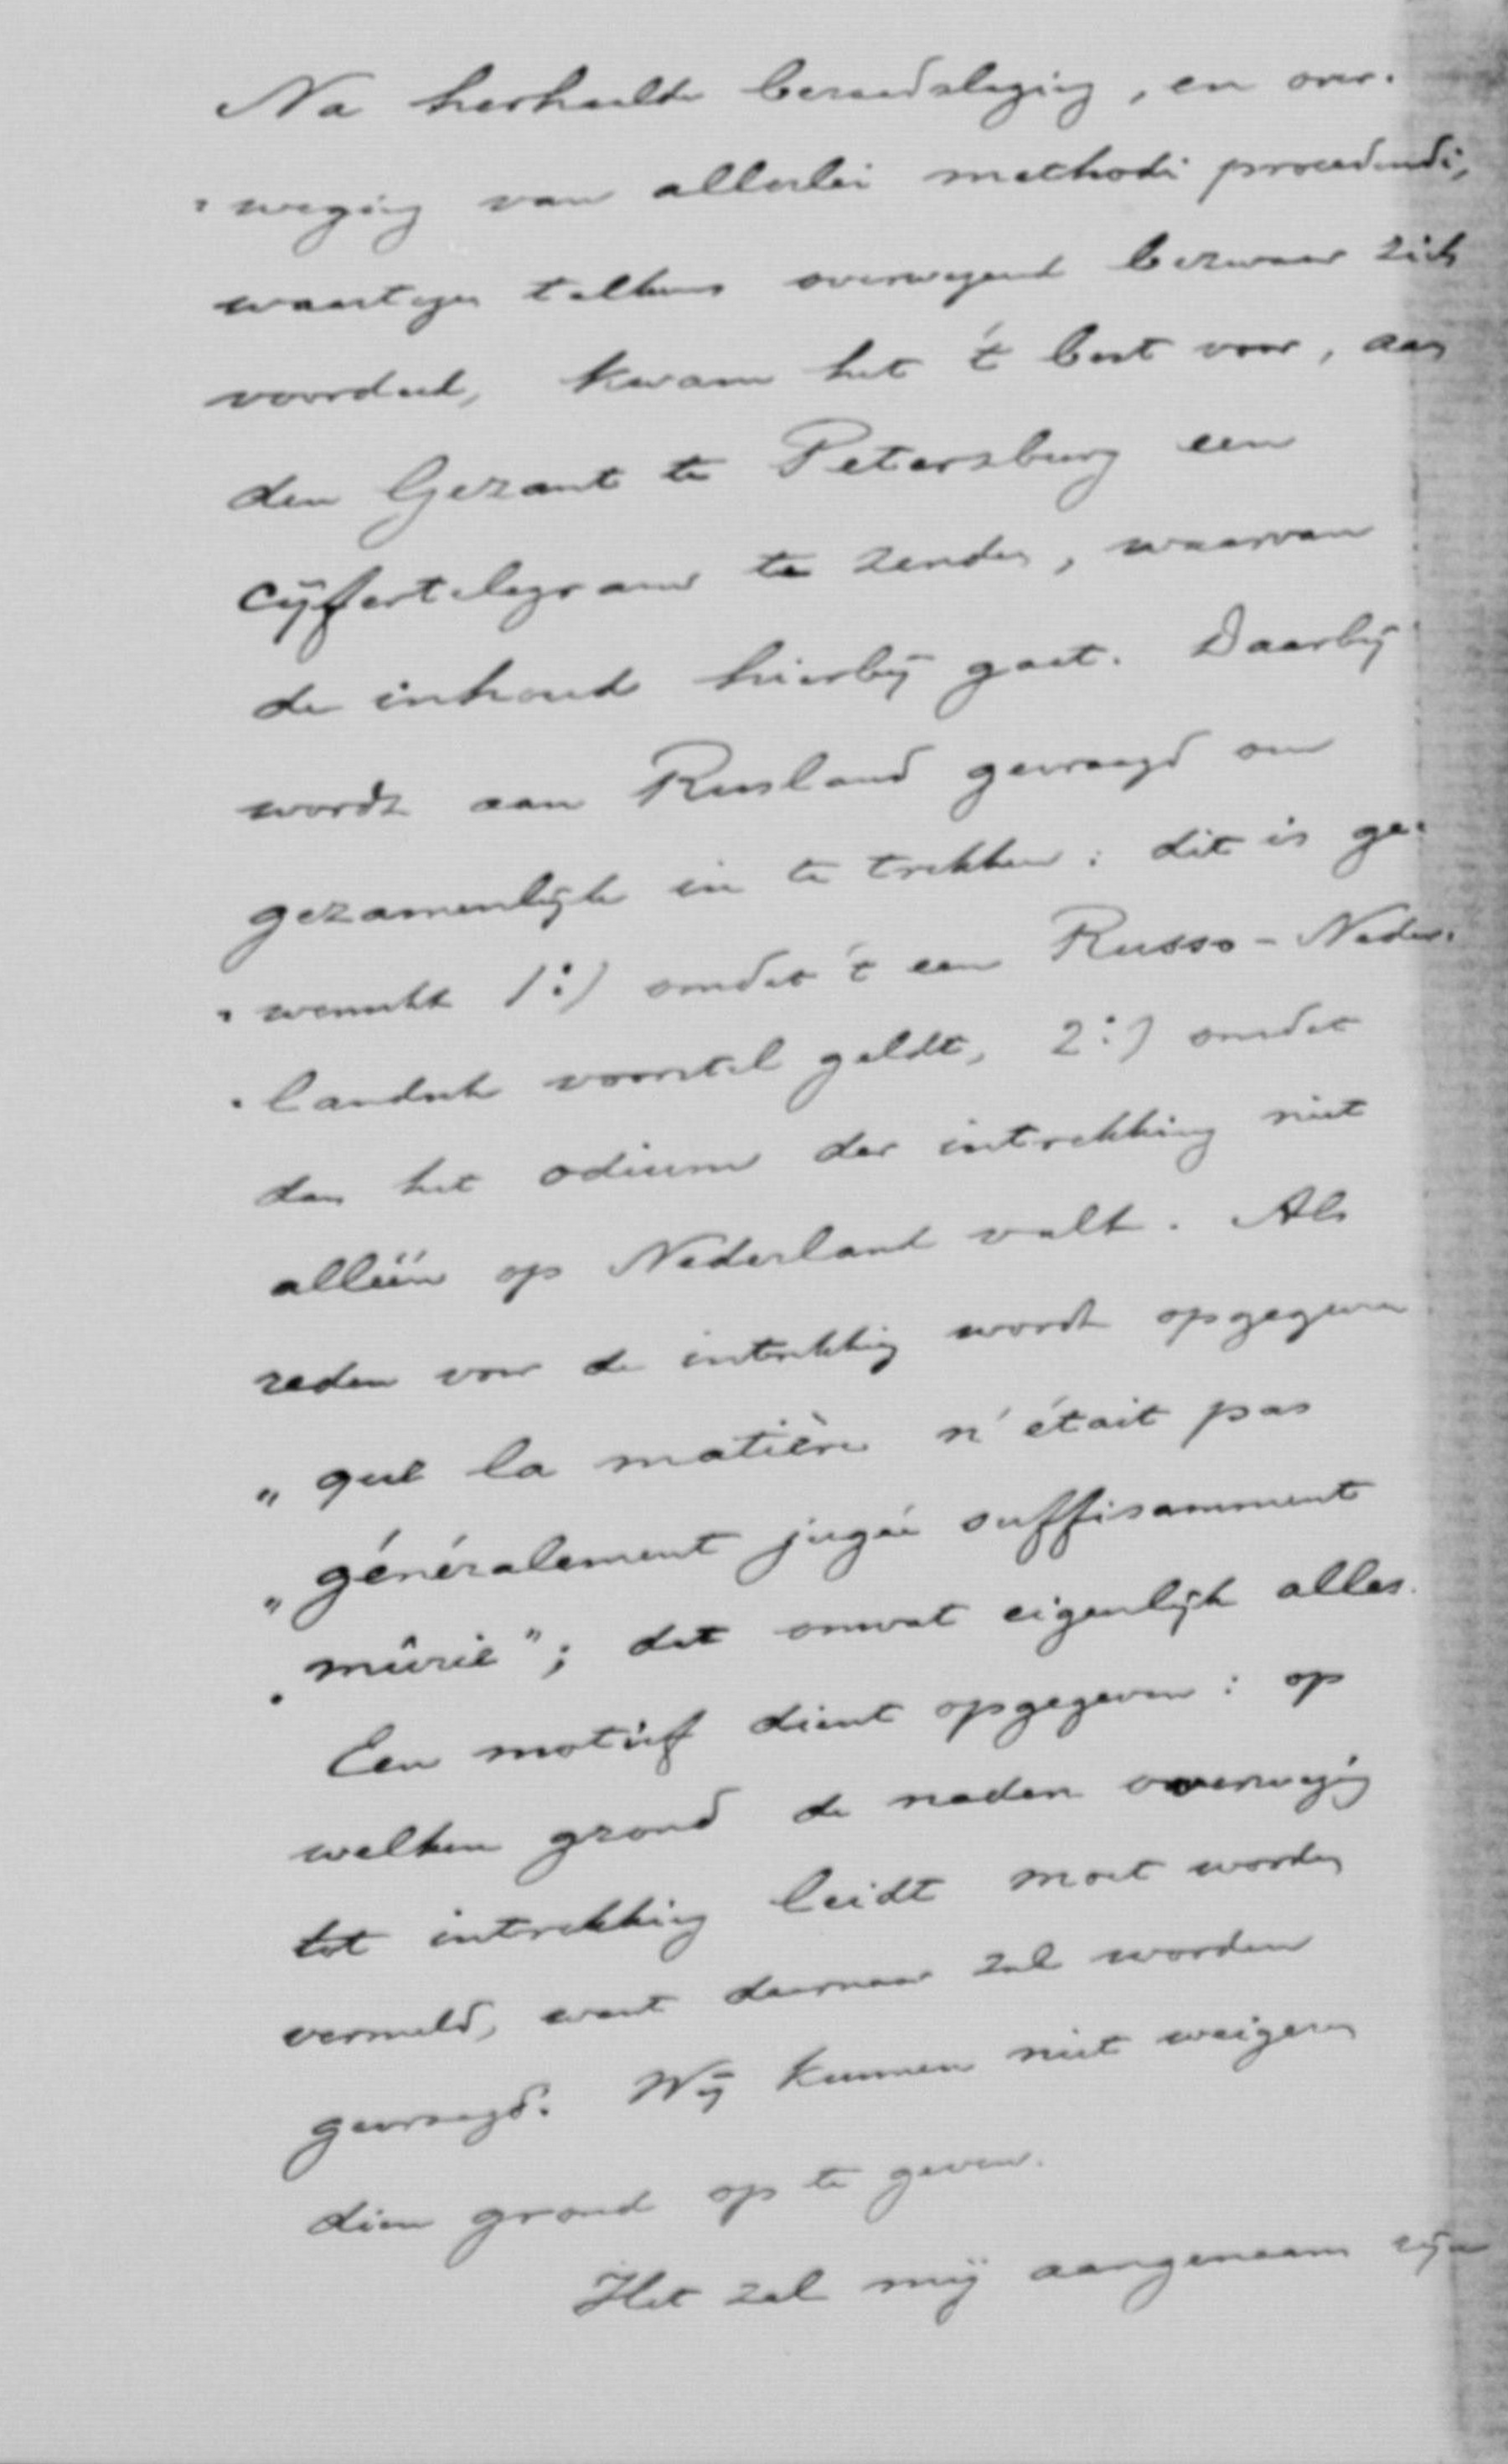 Na herhaalde beraadslaging, en over-
weging van allerlei methodi procedendi,
waartegen telkens overwegend bezwaar zich
voordeed, kwam het 't best voor, aan
den Gezant te Petersburg een
cijfertelegram te zenden, waarvan
de inhoud hierbij gaat. Daarbij
wordt aan Rusland gevraagd om
gezamenlijk in te trekken: dit is ge-
wenscht 1º) omdat 't een Russo-Neder-
landsch voorstel geldt, 2º) omdat
dan het odium der intrekking niet
alléén op Nederland valt. Als
reden voor de intrekking wordt opgegeven
"que la matière n'était pas
"généralement jugée suffisamment
"mûrie"; dat omvat eigenlijk alles.
Een motief dient opgegeven: op
welken grond de nadere overweging
tot intrekking leidt moet worden
vermeld, want daarnaar zal worden
gevraagd. Wij kunnen niet weigeren
dien grond op te geven.
Het zal mij aangenaam zijn